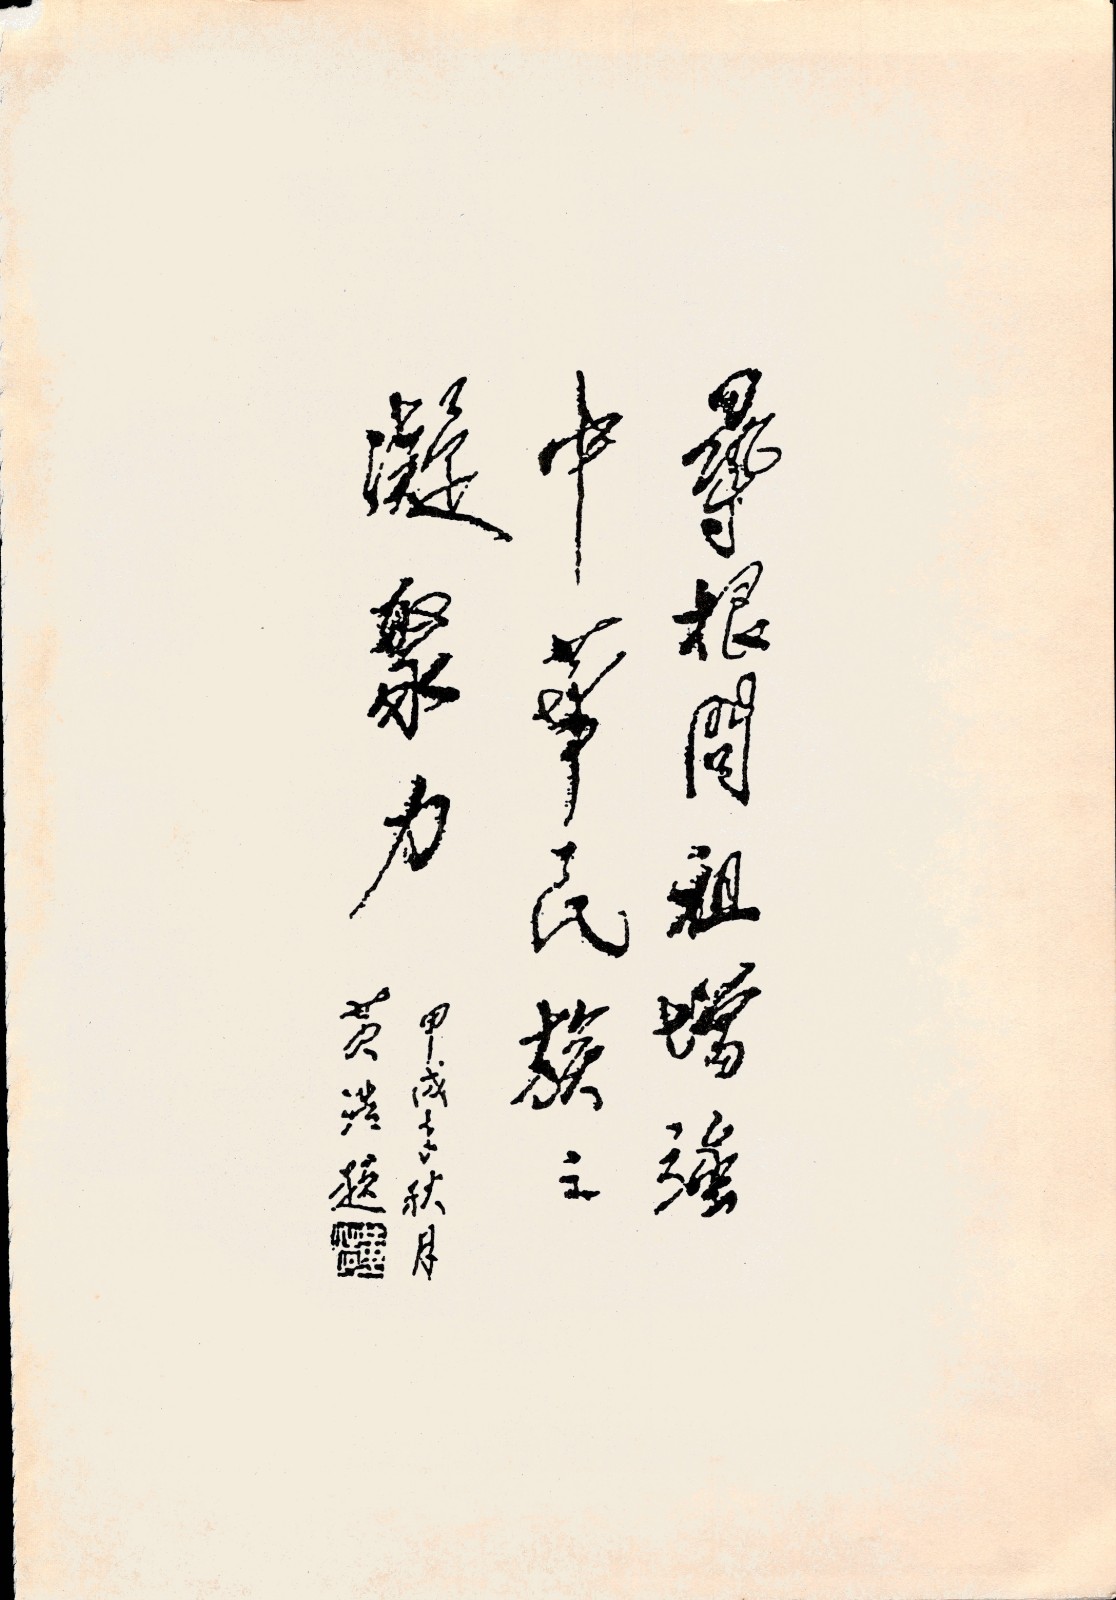 尋根問祖增強
中華民族之
凝聚力
甲戌年秋月
黄